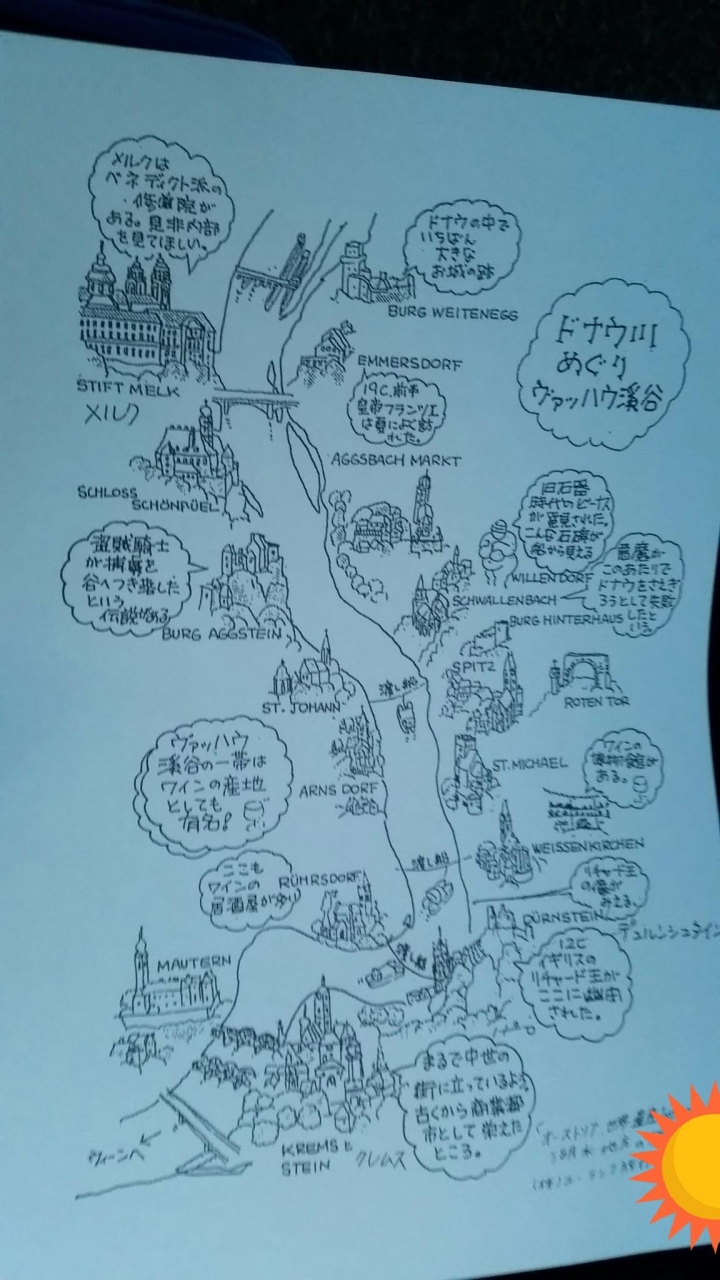 メルクは
ベネディクト派の
修道院が
ある。是非内部
を見てほしい。
STIFT MELK
メルク
ドナウの中で
いちばん
大きな
お城の跡
BURG WEITENEGG
ドナウ川
めぐり
ヴァッハウ渓谷
EMMERSDORF
19C.前半
皇帝フランツⅠ
は夏によく訪
れた。
SCHLOSS
SCHÖNBÜEL
AGGSBACH MARKT
旧石器
時代のビーナス
が発見された。
こんな石碑が
船から見える
WILLENDORF
盗賊騎士
が捕虜を
谷へつき落した
という
伝説がある
BURG AGGSTEIN
悪魔が
このあたりで
ドナウをさえぎ
ろうとして失敗
したと
いう。
SCHWALLENBACH
BURG HINTERHAUS
SPITZ
ROTEN TOR
ST. JOHANN
渡し船
ヴァッハウ
渓谷の一帯は
ワインの産地
としても
有名!
ARNS DORF
ST. MICHAEL
ワインの
博物館が
ある。
WEISSENKIRCHEN
渡し船
ここも
ワインの
居酒屋が多い
RÜHRSDORF
リチャード王
の像が
みえる。
DÜRNSTEIN
デュルンシュタイン
12C
イギリスの
リチャード王が
ここに幽閉
された。
渡し船
MAUTERN
まるで中世の
街に立っているよう。
古くから商業都
市として栄えた
ところ。
KREMSと
STEIN
クレムス
ウィーンへ
オーストリア 世界遺産